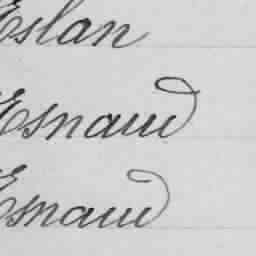 Eslan
Esnaud
Esnaud